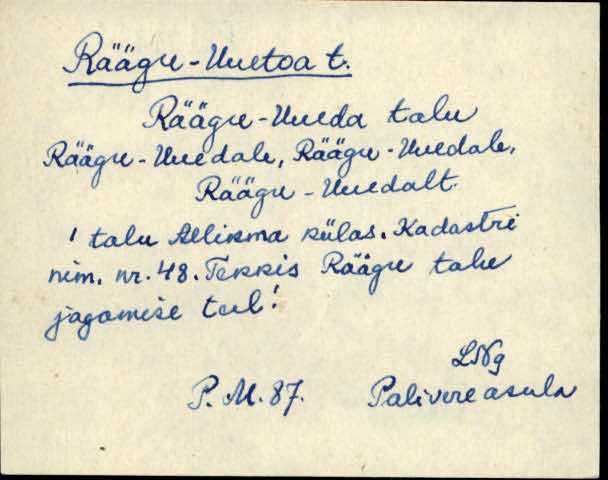 Räägu-Uuetoa t.
Räägu-Uueda talu
Räägu-Uuedale, Räägu-Uuedale,
Räägu-Uuedalt.
! talu Allikma külas. Kadastri
nim. nr. 48. Tekkis Räägu talu
jagamise teel!
LNg
P. M. 87. Palivere asula